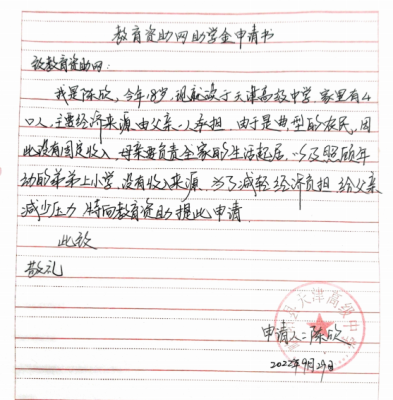 教育资助网助学金申请书
致教育资助网:
我是陈欣,今年18岁,现就读于天津高级中学.家里有4
口人,主要经济来源由父亲一人承担.由于是典型的农民,因
此没有固定收入.母亲要负责全家的生活起居.以及照顾年
幼的弟弟上小学,没有收入来源.为了减轻经济负担.给父亲
减少压力.特向教育资助提此申请.
此致
敬礼
天津高级中学
申请人:陈欣
2022年9月29日